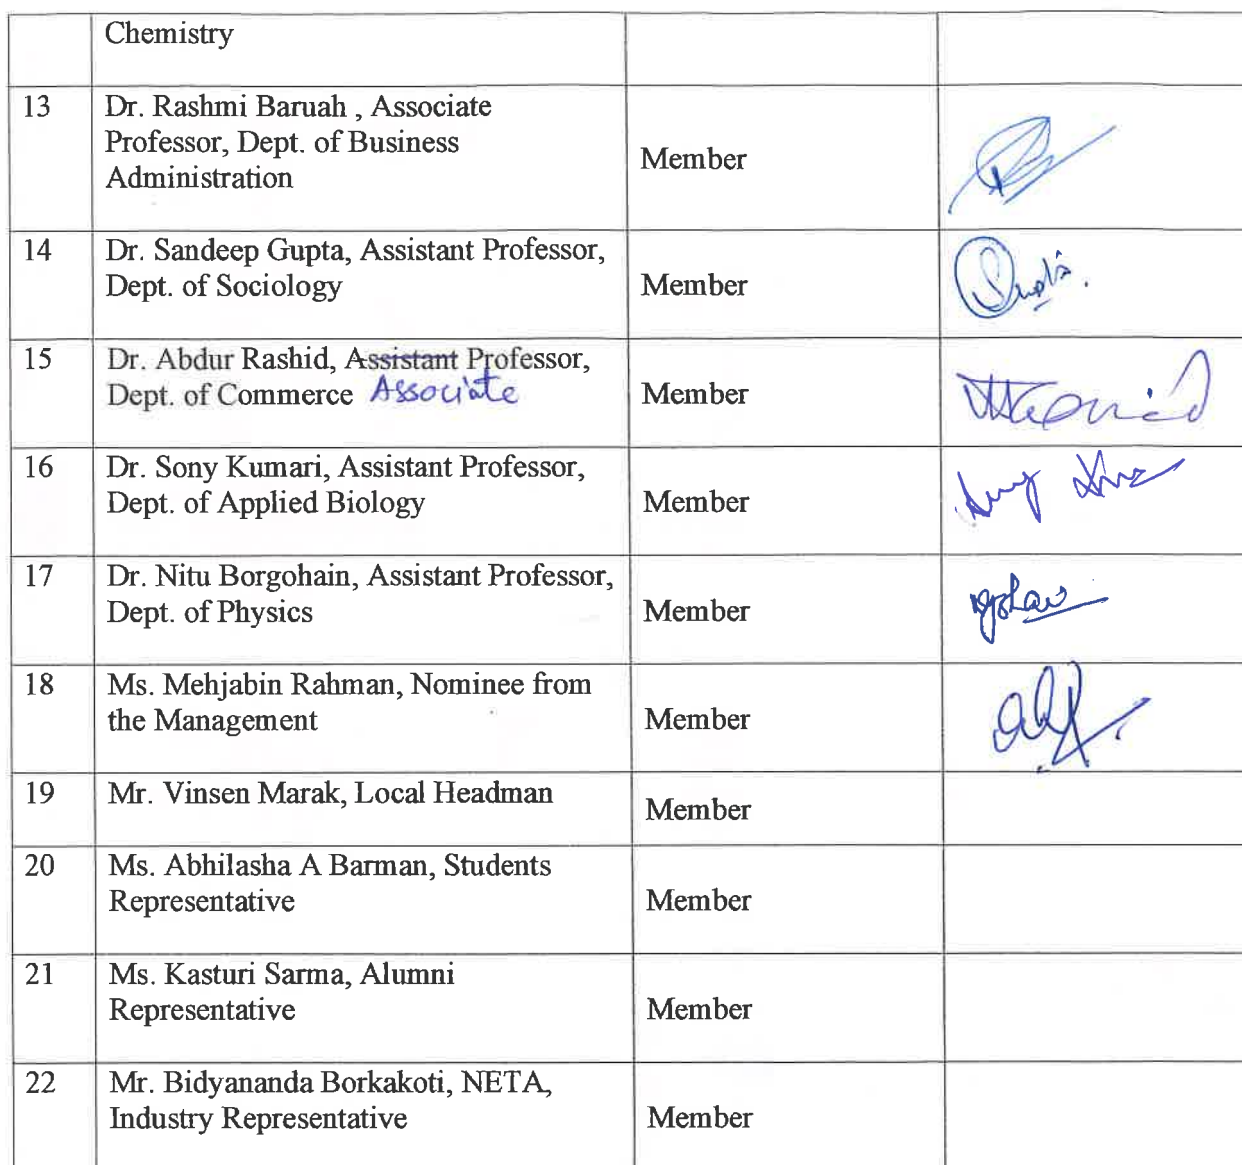 Chemistry
13
Dr. Rashmi Baruah , Associate
Professor, Dept. of Business
Administration
Member
14
Dr. Sandeep Gupta, Assistant Professor,
Dept. of Sociology
Member
15
Dr. Abdur Rashid, Assistant Professor,
Dept. of Commerce Associate
Member
16
Dr. Sony Kumari, Assistant Professor,
Dept. of Applied Biology
Member
17
Dr. Nitu Borgohain, Assistant Professor,
Dept. of Physics
Member
18
Ms. Mehjabin Rahman, Nominee from
the Management
Member
19
Mr. Vinsen Marak, Local Headman
Member
20
Ms. Abhilasha A Barman, Students
Representative
Member
21
Ms. Kasturi Sarma, Alumni
Representative
Member
22
Mr. Bidyananda Borkakoti, NETA,
Industry Representative
Member